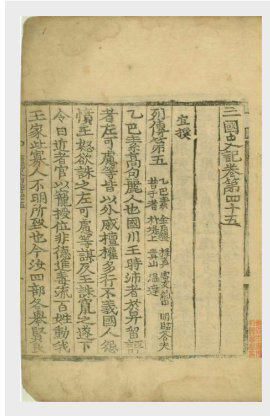 三國史記卷第四十五
宣撰
列傳第五 乙巴素 金后稷 祿眞 密友紐由 明臨荅夫
昔于老 朴堤上 貴山 溫達
乙巴素高句麗人也國川王時沛者於畀留評
者左可慮等皆以外戚擅權多行不義國人怨
憤王怒欲誅之左可慮等謀反王誅竄之遂下
令曰近者官以寵授位非德進毒流百姓動我
王家此寡人不明所致也今汝四部各舉賢良